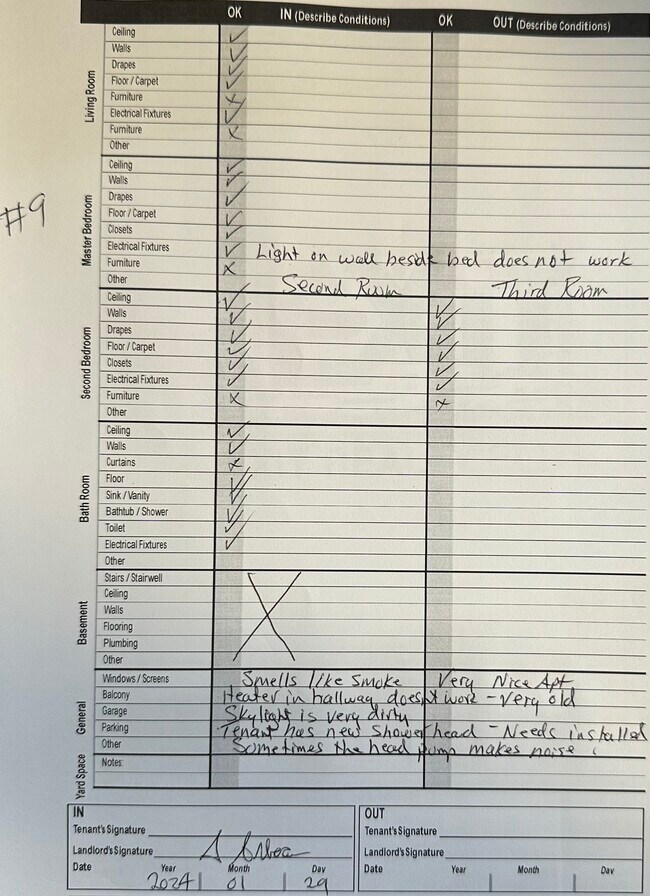 OK IN (Describe Conditions) OK OUT (Describe Conditions)
Living Room
Ceiling ✓
Walls ✓
Drapes ✓
Floor / Carpet ✓
Furniture x
Electrical Fixtures ✓
Furniture x
Other
#9
Master Bedroom
Ceiling ✓
Walls ✓
Drapes ✓
Floor / Carpet ✓
Closets ✓
Electrical Fixtures ✓ Light on wall beside bed does not work
Furniture x
Other Second Room Third Room
Second Bedroom
Ceiling ✓ ✓
Walls ✓ ✓
Drapes ✓ ✓
Floor / Carpet ✓ ✓
Closets ✓ ✓
Electrical Fixtures ✓ ✓
Furniture x x
Other
Bath Room
Ceiling ✓
Walls ✓
Curtains x
Floor ✓
Sink / Vanity ✓
Bathtub / Shower ✓
Toilet ✓
Electrical Fixtures ✓
Other
Basement
Stairs / Stairwell
Ceiling
Walls
Flooring
Plumbing
Other
General
Windows / Screens Smells like smoke Very Nice Apt
Balcony Heater in hallway doesn't work - very old
Garage Skylight is very dirty
Parking Tenant has new Shower head - Needs installed
Other Sometimes the head pump makes noise
Yard Space
Notes:
IN
Tenant's Signature
Landlord's Signature
Date Year Month Day
2024 01 29
OUT
Tenant's Signature
Landlord's Signature
Date Year Month Day